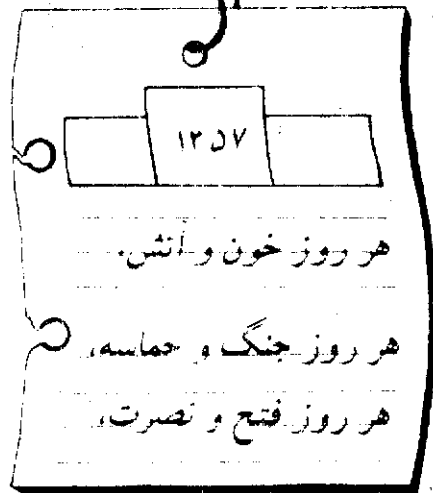 ۱۳۵۷
هر روز خون و آتش،
هر روز جنگ و حماسه،
هر روز فتح و نصرت،